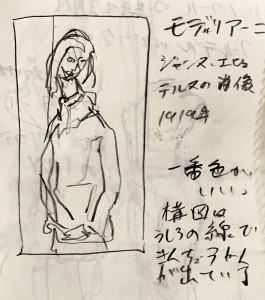 モディリアーニ
ジャンヌ・エビュ
テルヌの肖像
1919年
一番色が
いい。
構図は
うしろの線で
きんちょうかん
が出ている